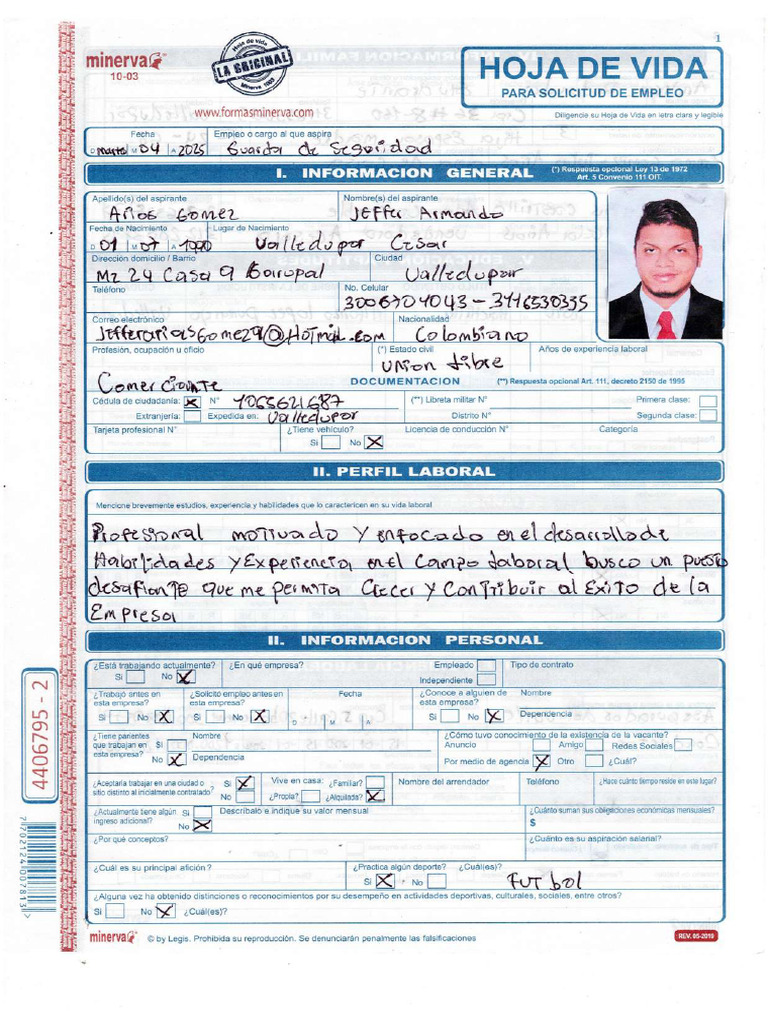 1
minerva
10-03
Hoja de vida
LA ORIGINAL
Minerva 1003
HOJA DE VIDA
PARA SOLICITUD DE EMPLEO
www.formasminerva.com
Diligencie su Hoja de Vida en letra clara y legible
Fecha Empleo o cargo al que aspira
D martes M 04 A 2025 Guarda de Seguridad
I. INFORMACION GENERAL (*) Respuesta opcional Ley 13 de 1972
Art. 5 Convenio 111 OIT.
Apellido(s) del aspirante Nombre(s) del aspirante
Arios Gomez Jeffer Armando
Fecha de Nacimiento Lugar de Nacimiento
D 01 M 07 A 1990 Valledupar Cesar
Dirección domicilio / Barrio Ciudad
Mz 24 Casa 9 Garupal Valledupar
Teléfono No. Celular
3006704043 - 3116530335
Correo electrónico Nacionalidad
JefferariasGomez9@HoTmail.com Colombiano
Profesión, ocupación u oficio (*) Estado civil Años de experiencia laboral
Comerciante Union Libre
DOCUMENTACION (**) Respuesta opcional Art. 111, decreto 2150 de 1995
Cédula de ciudadanía: X N° 1065621687 (**) Libreta militar N° Primera clase:
Extranjería: Expedida en: Valledupar Distrito N° Segunda clase:
Tarjeta profesional N° ¿Tiene vehículo? Licencia de conducción N° Categoría
Si No X
II. PERFIL LABORAL
Mencione brevemente estudios, experiencia y habilidades que lo caractericen en su vida laboral
Profesional motivado y enfocado en el desarrollo de
Habilidades y Experiencia en el campo laboral busco un puesto
desafiante que me permita Crecer y Contribuir al Exito de la
Empresa
II. INFORMACION PERSONAL
¿Está trabajando actualmente? ¿En qué empresa? Empleado Tipo de contrato
Si No X Independiente
¿Trabajó antes en ¿Solicitó empleo antes en Fecha ¿Conoce a alguien de Nombre
esta empresa? esta empresa? esta empresa?
Si No X Si No X D M A Si No X Dependencia
¿Tiene parientes Nombre ¿Cómo tuvo conocimiento de la existencia de la vacante?
que trabajan en Si Anuncio Amigo Redes Sociales
esta empresa? No X Dependencia Por medio de agencia X Otro ¿Cuál?
¿Aceptaría trabajar en una ciudad o Si X Vive en casa: ¿Familiar? Nombre del arrendador Teléfono ¿Hace cuánto tiempo reside en este lugar?
sitio distinto al inicialmente contratado? No ¿Propia? ¿Alquilada? X
¿Actualmente tiene algún Si Descríbalo e indique su valor mensual ¿Cuánto suman sus obligaciones económicas mensuales?
ingreso adicional? No X $
¿Por qué conceptos? ¿Cuánto es su aspiración salarial?
¿Cuál es su principal afición? ¿Practica algún deporte? ¿Cuál(es)?
Si X No FUTbol
¿Alguna vez ha obtenido distinciones o reconocimientos por su desempeño en actividades deportivas, culturales, sociales, entre otros?
Si No X ¿Cuál(es)?
minerva © by Legis. Prohibida su reproducción. Se denunciarán penalmente las falsificaciones REV. 05-2019
4406795 - 2
7702124007813